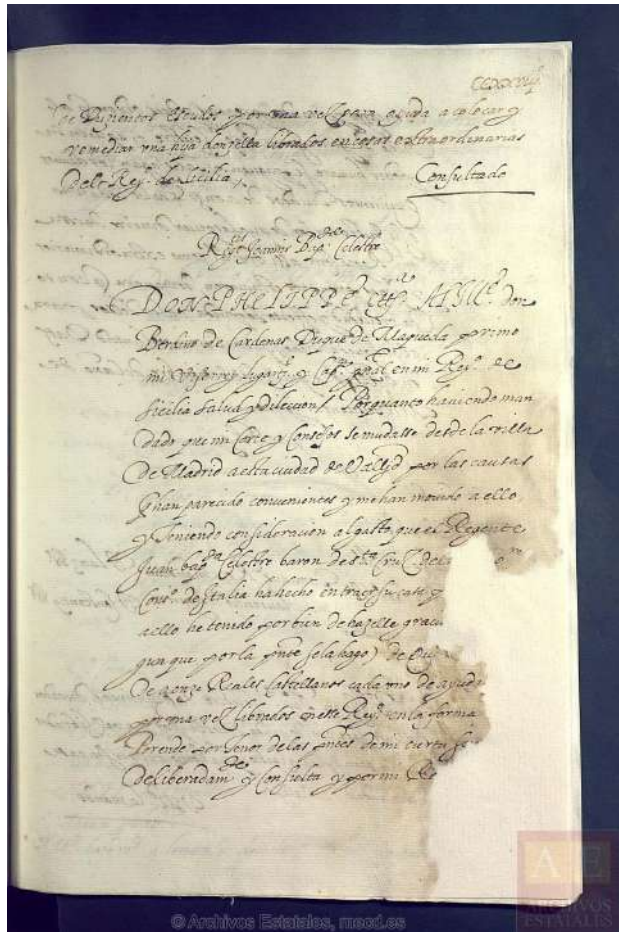 de Duzientos escudos por una vez para ayuda a colocar y
remediar una hija donzella librados en cosas extraordinarias
del Reyº. de Sicilia,
Consultado
Regtis Joannis Bapte Celestre
DON PHELIPPE etc. Al Ille. don
Berdino de Cardenas Duque de Maqueda primo
mi Visorrey lugarte. y Capn. gnal en mi Reyº. de
Sicilia salud y dileccion / Porquanto haviendo man
dado que mi Corte y Consejos se mudasse desde la villa
de Madrid a esta ciudad de Vallid por las causas
q han parecido convenientes y me han movido a ello,
y teniendo consideracion al gasto que el Regente
Juan bapta Celestre baron de sta Cruz del
Conso. de Italia ha hecho en traer su casa y
a ello he tenido por bien de hazelle graci
gun que por la pnte se la hago) de Qui
De onze Reales Castellanos cada uno de ayuda
por una vez librados en esse Reyº. en la forma
Porende por tenor de las pntes de mi cierta
deliberadamte y Consulta y por mi Re
© Archivos Estatales, mecd.es
AE
ARCHIVOS
ESTATALES